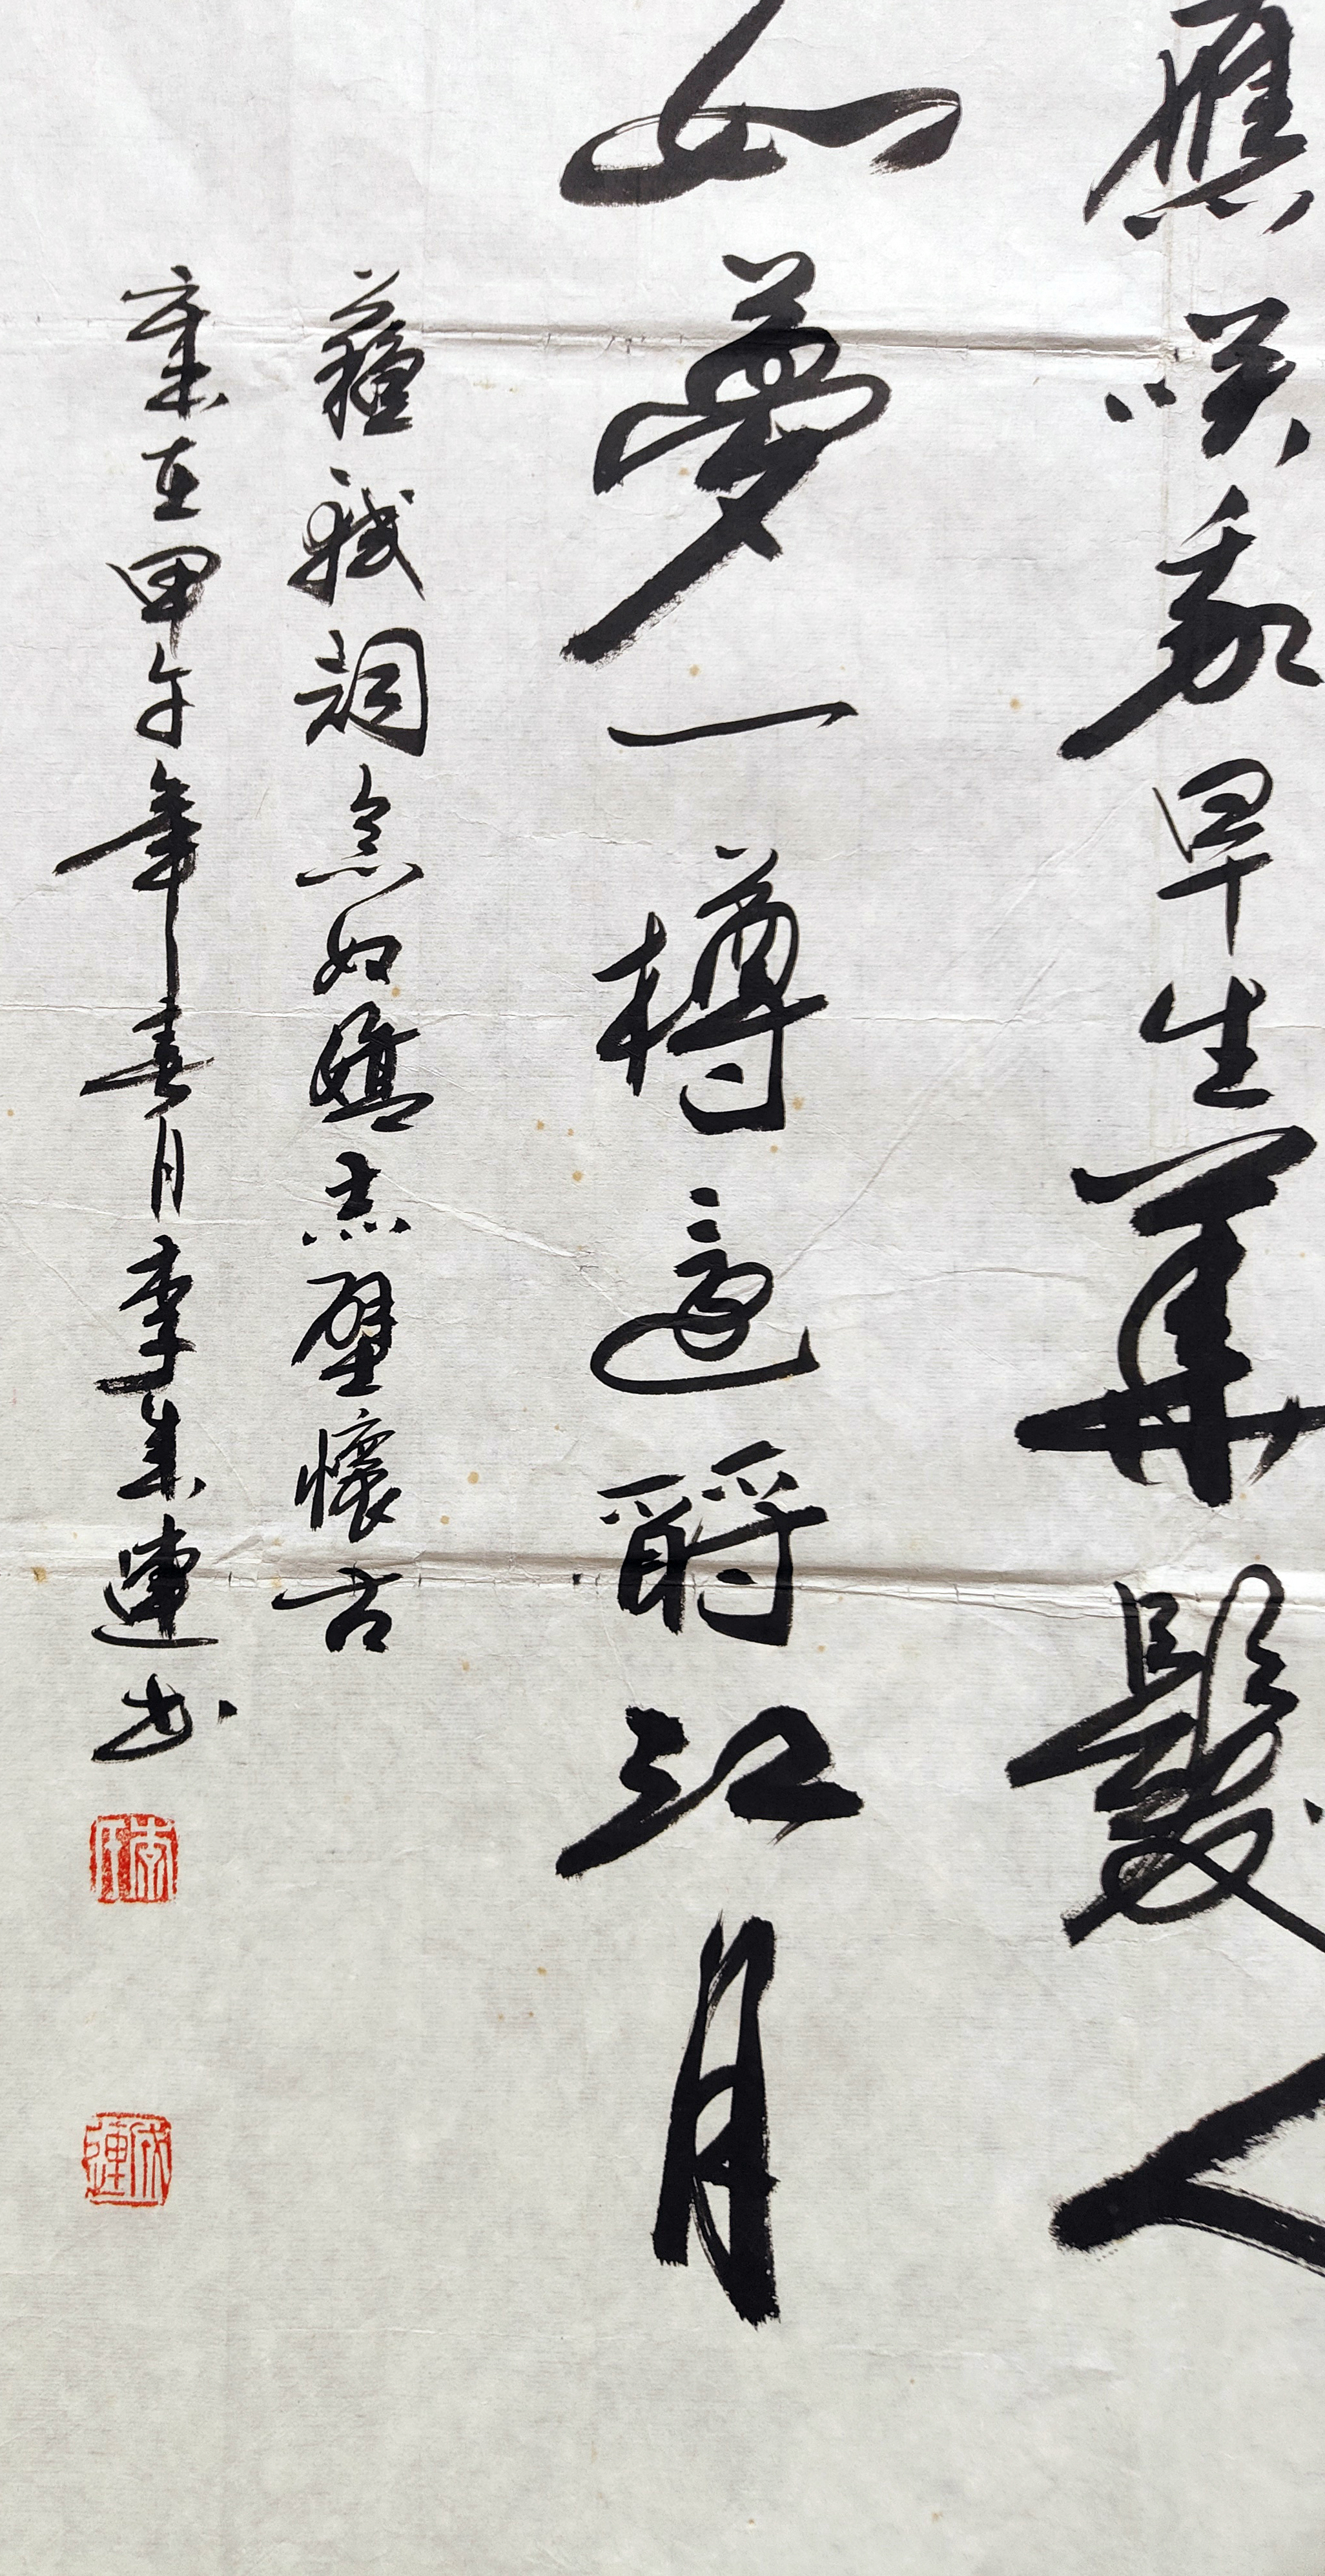 應咲我早生華髮人
如夢一樽還酹江月
蘇軾詞念奴嬌赤壁懷古
歲在甲午年春月李成連书